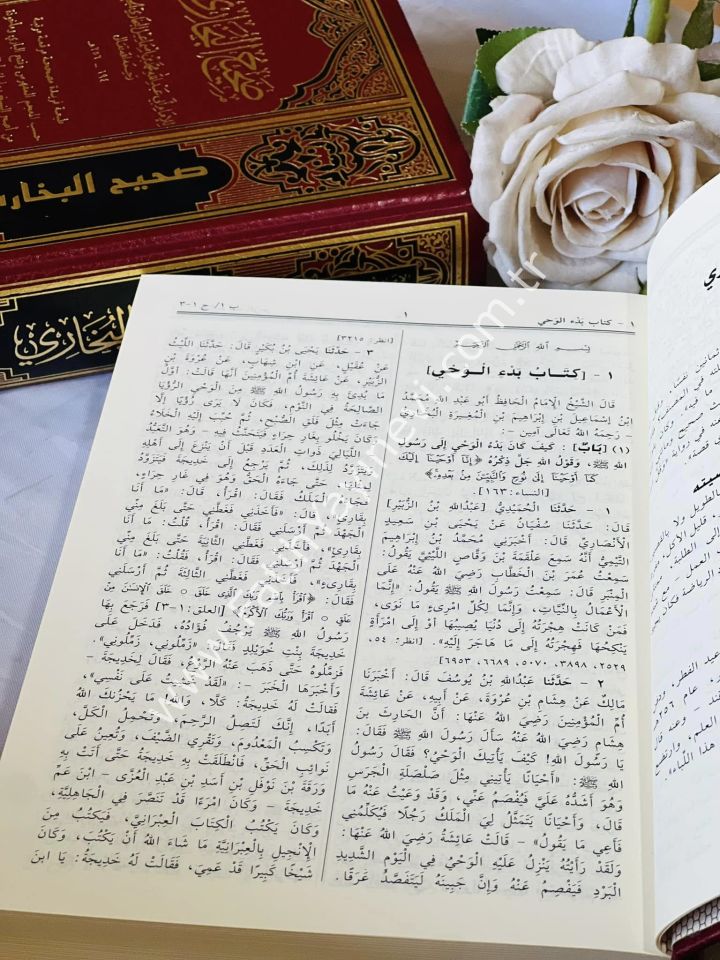 صحيح البخاري
صحيح البخار
البُخَاري
١ - كتاب بَدْء الوَحي
١
ب ١/ ح ١-٣
بِسْمِ اللهِ الرَّحْمٰنِ الرَّحِيْمِ
١ - [كِتَابُ بَدْءِ الْوَحْيِ]
قَالَ الشَّيْخُ الإِمَامُ الْحَافِظُ أَبُو عَبْدِ اللهِ مُحَمَّدُ
ابْنُ إِسْمَاعِيلَ بْنِ إِبْرَاهِيمَ بْنِ الْمُغِيرَةِ الْبُخَارِيُّ
- رَحِمَهُ اللهُ تَعَالَى آمِين - :
(١) [بَابٌ] : كَيْفَ كَانَ بَدْءُ الْوَحْيِ إِلَى رَسُولِ
اللهِ ﷺ، وَقَوْلُ اللهِ جَلَّ ذِكْرُهُ ﴿إِنَّا أَوْحَيْنَا إِلَيْكَ
كَمَا أَوْحَيْنَا إِلَى نُوحٍ وَالنَّبِيِّينَ مِنْ بَعْدِهِ﴾
[النساء: ١٦٣]
١ - حَدَّثَنَا الْحُمَيْدِيُّ [عَبْدُاللهِ بْنُ الزُّبَيْرِ]
قَالَ: حَدَّثَنَا سُفْيَانُ عَنْ يَحْيَى بْنِ سَعِيدٍ
الأَنْصَارِيِّ قَالَ: أَخْبَرَنِي مُحَمَّدُ بْنُ إِبْرَاهِيمَ
التَّيْمِيُّ أَنَّهُ سَمِعَ عَلْقَمَةَ بْنَ وَقَّاصٍ اللَّيْثِيَّ يَقُولُ:
سَمِعْتُ عُمَرَ بْنَ الْخَطَّابِ رَضِيَ اللهُ عَنْهُ عَلَى
الْمِنْبَرِ قَالَ: سَمِعْتُ رَسُولَ اللهِ ﷺ يَقُولُ: «إِنَّمَا
الأَعْمَالُ بِالنِّيَّاتِ، وَإِنَّمَا لِكُلِّ امْرِىءٍ مَا نَوَى،
فَمَنْ كَانَتْ هِجْرَتُهُ إِلَى دُنْيَا يُصِيبُهَا أَوْ إِلَى امْرَأَةٍ
يَنْكِحُهَا فَهِجْرَتُهُ إِلَى مَا هَاجَرَ إِلَيْهِ». [انظر: ٥٤،
٢٥٢٩، ٣٨٩٨، ٥٠٧٠، ٦٦٨٩، ٦٩٥٣]
٢ - حَدَّثَنَا عَبْدُاللهِ بْنُ يُوسُفَ قَالَ: أَخْبَرَنَا
مَالِكٌ عَنْ هِشَامِ بْنِ عُرْوَةَ، عَنْ أَبِيهِ، عَنْ عَائِشَةَ
أُمِّ الْمُؤْمِنِينَ رَضِيَ اللهُ عَنْهَا: أَنَّ الْحَارِثَ بْنَ
هِشَامٍ رَضِيَ اللهُ عَنْهُ سَأَلَ رَسُولَ اللهِ ﷺ فَقَالَ:
يَا رَسُولَ اللهِ! كَيْفَ يَأْتِيكَ الْوَحْيُ؟ فَقَالَ رَسُولُ
اللهِ ﷺ: «أَحْيَانًا يَأْتِينِي مِثْلَ صَلْصَلَةِ الْجَرَسِ
وَهُوَ أَشَدُّهُ عَلَيَّ فَيُفْصَمُ عَنِّي، وَقَدْ وَعَيْتُ عَنْهُ مَا
قَالَ، وَأَحْيَانًا يَتَمَثَّلُ لِيَ الْمَلَكُ رَجُلًا فَيُكَلِّمُنِي
فَأَعِي مَا يَقُولُ» - قَالَتْ عَائِشَةُ رَضِيَ اللهُ عَنْهَا:
وَلَقَدْ رَأَيْتُهُ يَنْزِلُ عَلَيْهِ الْوَحْيُ فِي الْيَوْمِ الشَّدِيدِ
الْبَرْدِ فَيَفْصِمُ عَنْهُ وَإِنَّ جَبِينَهُ لَيَتَفَصَّدُ عَرَقًا.
[انظر: ٣٢١٥]
٣ - حَدَّثَنَا يَحْيَى بْنُ بُكَيْرٍ قَالَ: حَدَّثَنَا اللَّيْثُ
عَنْ عُقَيْلٍ، عَنِ ابْنِ شِهَابٍ، عَنْ عُرْوَةَ بْنِ
الزُّبَيْرِ، عَنْ عَائِشَةَ أُمِّ الْمُؤْمِنِينَ أَنَّهَا قَالَتْ: أَوَّلُ
مَا بُدِئَ بِهِ رَسُولُ اللهِ ﷺ مِنَ الْوَحْيِ الرُّؤْيَا
الصَّالِحَةُ فِي النَّوْمِ، فَكَانَ لَا يَرَى رُؤْيَا إِلَّا
جَاءَتْ مِثْلَ فَلَقِ الصُّبْحِ، ثُمَّ حُبِّبَ إِلَيْهِ الْخَلَاءُ
وَكَانَ يَخْلُو بِغَارِ حِرَاءٍ فَيَتَحَنَّثُ فِيهِ - وَهُوَ التَّعَبُّدُ
- اللَّيَالِيَ ذَوَاتِ الْعَدَدِ قَبْلَ أَنْ يَنْزِعَ إِلَى أَهْلِهِ
وَيَتَزَوَّدُ لِذَلِكَ، ثُمَّ يَرْجِعُ إِلَى خَدِيجَةَ فَيَتَزَوَّدُ
لِمِثْلِهَا، حَتَّى جَاءَهُ الْحَقُّ وَهُوَ فِي غَارِ حِرَاءٍ،
فَجَاءَهُ الْمَلَكُ فَقَالَ: اقْرَأْ، قَالَ: «مَا أَنَا
بِقَارِئٍ»، قَالَ: «فَأَخَذَنِي فَغَطَّنِي حَتَّى بَلَغَ مِنِّي
الْجَهْدَ ثُمَّ أَرْسَلَنِي فَقَالَ: اقْرَأْ، قُلْتُ: مَا أَنَا
بِقَارِئٍ، فَأَخَذَنِي فَغَطَّنِي الثَّانِيَةَ حَتَّى بَلَغَ مِنِّي
الْجَهْدَ ثُمَّ أَرْسَلَنِي فَقَالَ: اقْرَأْ، فَقُلْتُ: «مَا أَنَا
بِقَارِئٍ»، فَأَخَذَنِي فَغَطَّنِي الثَّالِثَةَ ثُمَّ أَرْسَلَنِي
فَقَالَ: ﴿اقْرَأْ بِاسْمِ رَبِّكَ الَّذِي خَلَقَ ○ خَلَقَ الْإِنْسَانَ مِنْ
عَلَقٍ ○ اقْرَأْ وَرَبُّكَ الْأَكْرَمُ﴾ [العلق: ١-٣] فَرَجَعَ بِهَا
رَسُولُ اللهِ ﷺ يَرْجُفُ فُؤَادُهُ، فَدَخَلَ عَلَى
خَدِيجَةَ بِنْتِ خُوَيْلِدٍ فَقَالَ: «زَمِّلُونِي، زَمِّلُونِي».
فَزَمَّلُوهُ حَتَّى ذَهَبَ عَنْهُ الرَّوْعُ، فَقَالَ لِخَدِيجَةَ -
وَأَخْبَرَهَا الْخَبَرَ -: «لَقَدْ خَشِيتُ عَلَى نَفْسِي»،
فَقَالَتْ لَهُ خَدِيجَةُ: كَلَّا، وَاللهِ! مَا يُحْزِنُكَ اللهُ
أَبَدًا، إِنَّكَ لَتَصِلُ الرَّحِمَ، وَتَحْمِلُ الْكَلَّ،
وَتَكْسِبُ الْمَعْدُومَ، وَتَقْرِي الضَّيْفَ، وَتُعِينُ عَلَى
نَوَائِبِ الْحَقِّ، فَانْطَلَقَتْ بِهِ خَدِيجَةُ حَتَّى أَتَتْ بِهِ
وَرَقَةَ بْنَ نَوْفَلِ بْنِ أَسَدِ بْنِ عَبْدِ الْعُزَّى - ابْنَ عَمِّ
خَدِيجَةَ - وَكَانَ امْرَءًا قَدْ تَنَصَّرَ فِي الْجَاهِلِيَّةِ،
وَكَانَ يَكْتُبُ الْكِتَابَ الْعِبْرَانِيَّ، فَيَكْتُبُ مِنَ
الْإِنْجِيلِ بِالْعِبْرَانِيَّةِ مَا شَاءَ اللهُ أَنْ يَكْتُبَ، وَكَانَ
شَيْخًا كَبِيرًا قَدْ عَمِيَ، فَقَالَتْ لَهُ خَدِيجَةُ: يَا ابنَ